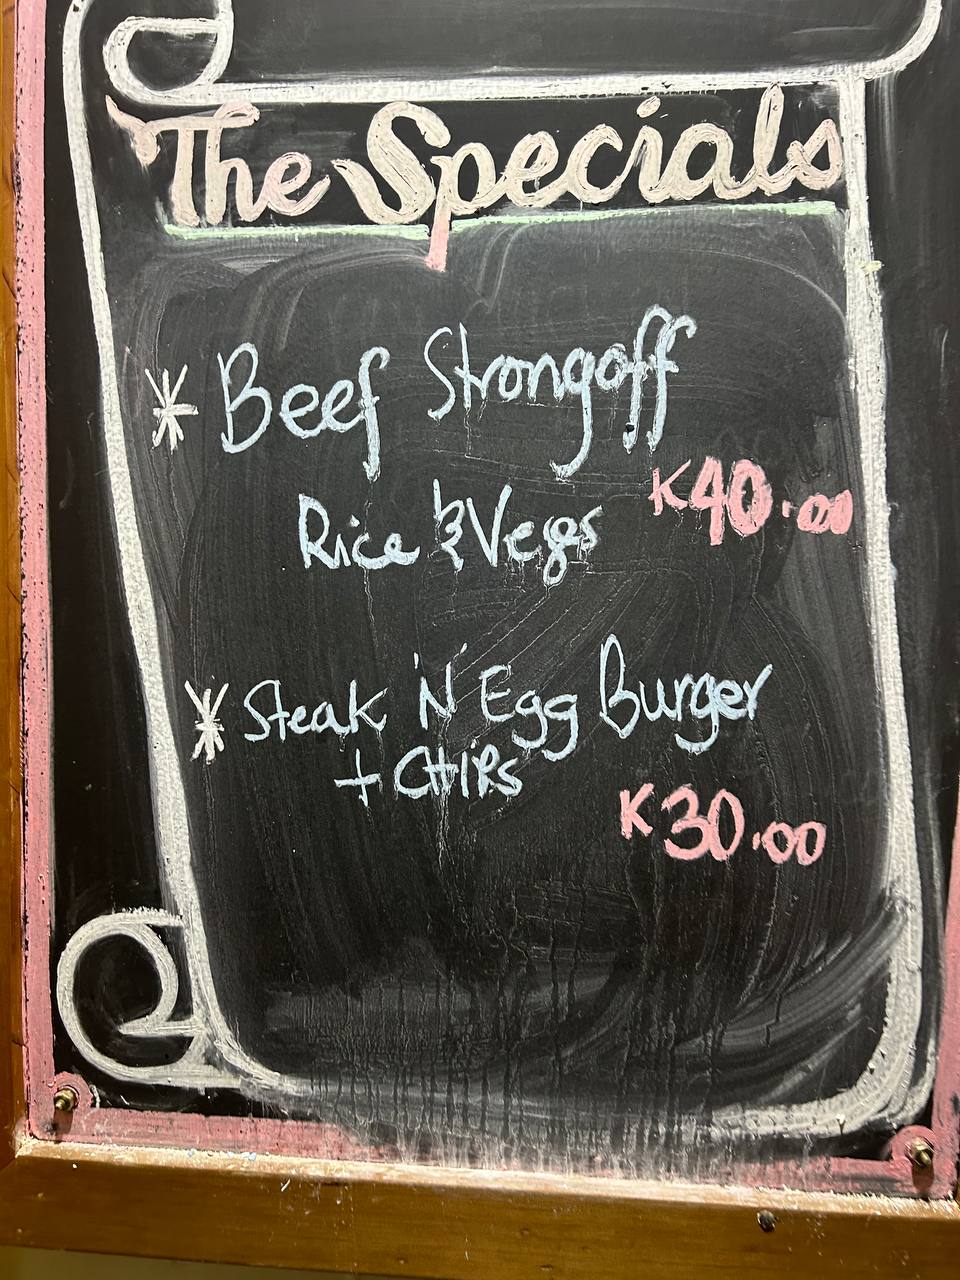 The Specials
* Beef Strongoff
Rice & Veges K40.00
* Steak 'N' Egg Burger
+ CHIPS
K30.00